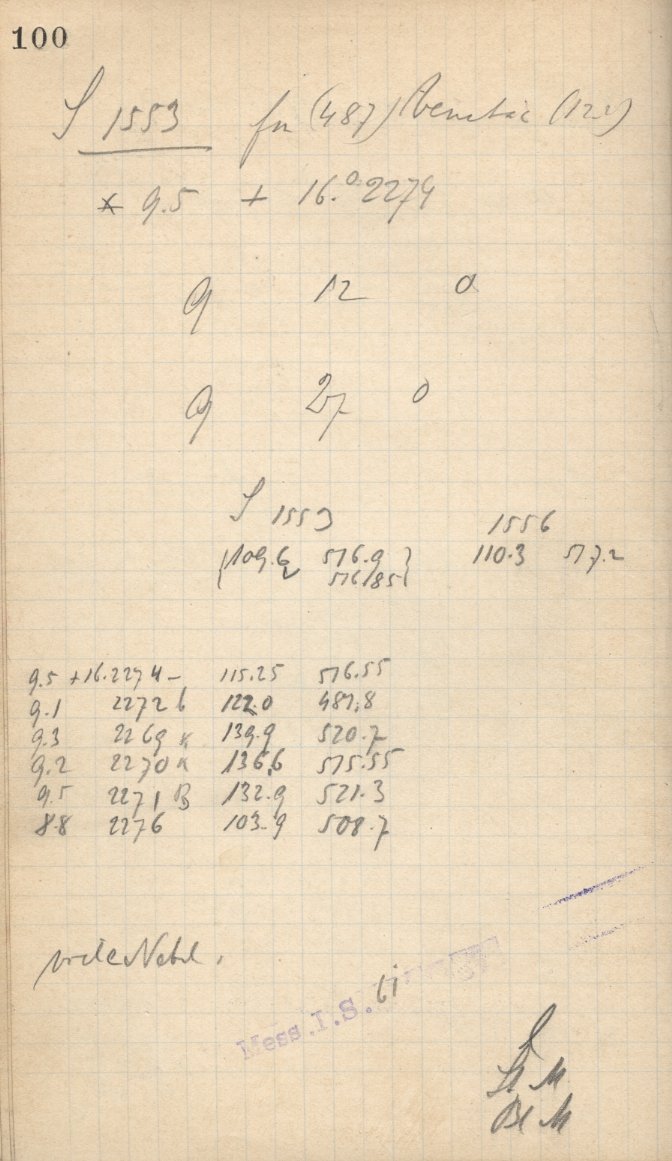 100
S 1553 für (487) Venetia (12.1)
* 9.5 + 16.°2274
9 12 0
9 27 0
S 1553 1556
109.6 516.9 110.3 517.2
516.85
9.5 +16.2274 - 115.25 516.55
9.1 2272 b 122.0 487.8
9.3 2269 139.9 520.7
9.2 2270 136.6 515.55
9.5 2271 B 132.9 521.3
8.8 2276 103.9 508.7
viele Nebel.
Mess. I. S.